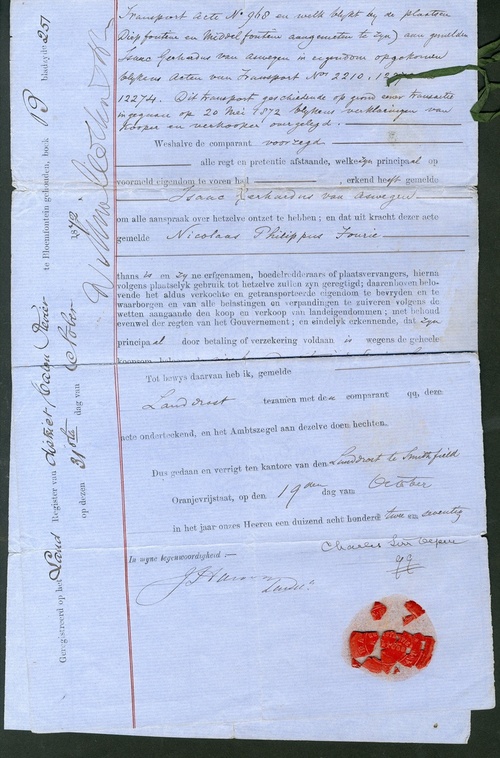 Transport acte No 968 en welk blykt by de plaatsen
Diepfontein en Middelfontein aangemeten te zyn) aan gemelden
Isaac Gerhardus van Aswegen in eigendom opgekomen
blykens Acten van Transport Nos 2210,
12274. Dit transport geschiedende op grond eener transactie
ingegaan op 20 Mei 1872 blykens verklaringen van
kooper en verkooper overgelegd.
Weshalve de comparant voorzegd
alle regt en pretentie afstaande, welke zyn principaal op
voormeld eigendom te voren had, erkend heeft gemelde
Isaac Gerhardus van Aswegen
om alle aanspraak over hetzelve ontzet te hebben; en dat uit kracht dezer acte
gemelde Nicolaas Philippus Fourie
thans is en zyne erfgenamen, boedelredderaars of plaatsvervangers, hierna
volgens plaatselyk gebruik tot hetzelve zullen zyn geregtigd; daarenboven belo-
vende het aldus verkochte en getransporteerde eigendom te bevryden en te
waarborgen en van alle belastingen en verpandingen te zuiveren volgens de
wetten aangaande den koop en verkoop van landeigendommen; met behoud
evenwel der regten van het Gouvernement; en eindelyk erkennende, dat zyn
principaal door betaling of verzekering voldaan is wegens de geheele
koopsom
Tot bewys daarvan heb ik, gemelde
Landdrost tezamen met den comparant qq, deze
acte onderteekend, en het Ambtszegel aan dezelve doen hechten.
Dus gedaan en verrigt ten kantore van den Landdrost te Smithfield
Oranjevrijstaat, op den 19den dag van October
in het jaar onzes Heeren een duizend acht honderd twee en seventig
In myne tegenwoordigheid :—
Charles
qq
Landdt
Geregistreerd op het Land Register van district Caledon Rivier te Bloemfontein gehouden, boek B bladzyde 251
op dezen 31ste dag van October 1872